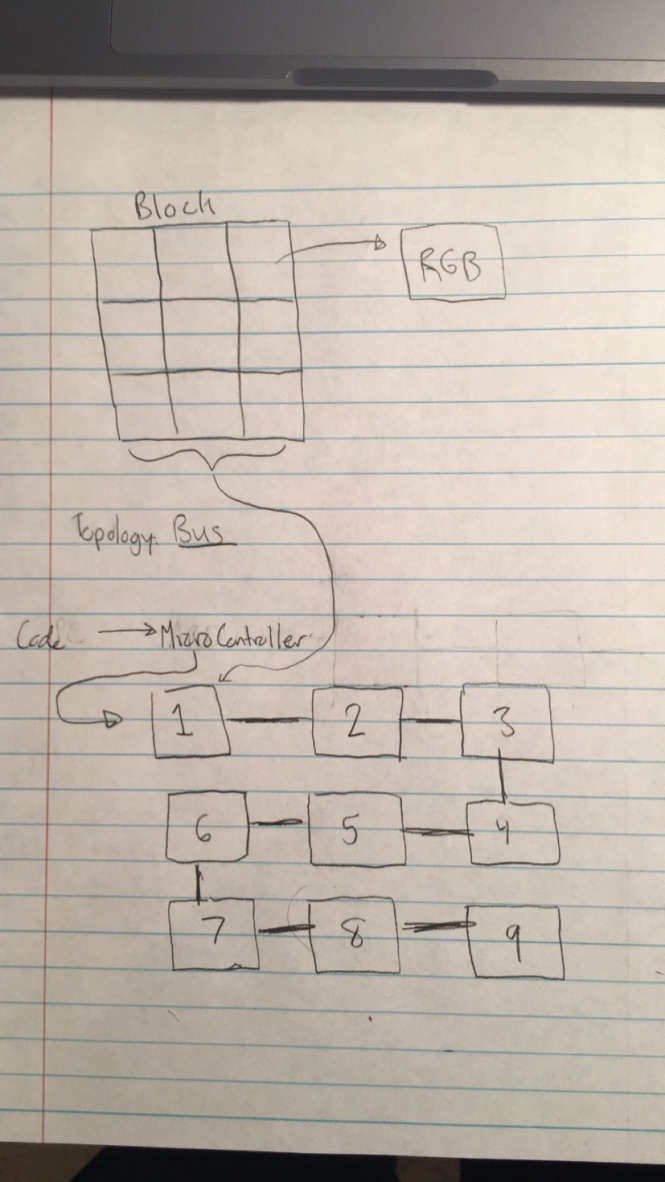 Block
RGB
Topology: Bus
Code → MicroController
1 2 3
6 5 4
7 8 9